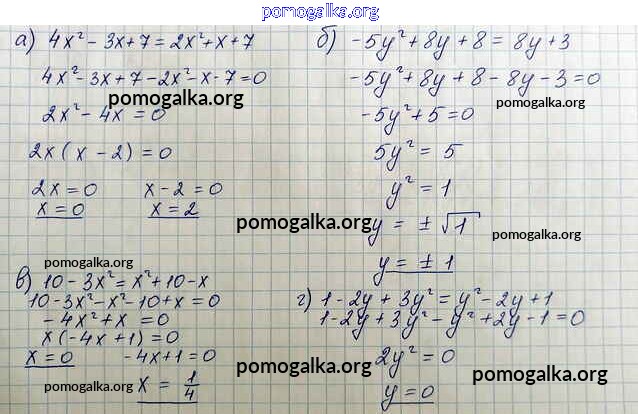 pomogalka.org
а) 4x² - 3x + 7 = 2x² + x + 7
4x² - 3x + 7 - 2x² - x - 7 = 0
pomogalka.org
2x² - 4x = 0
2x (x - 2) = 0
2x = 0 x - 2 = 0
x = 0 x = 2
б) -5y² + 8y + 8 = 8y + 3
-5y² + 8y + 8 - 8y - 3 = 0
pomogalka.org
-5y² + 5 = 0
5y² = 5
y² = 1
pomogalka.org
y = ± √1
pomogalka.org
y = ± 1
pomogalka.org
в) 10 - 3x² = x² + 10 - x
10 - 3x² - x² - 10 + x = 0
-4x² + x = 0
x (-4x + 1) = 0
x = 0 -4x + 1 = 0
pomogalka.org x = 1/4
г) 1 - 2y + 3y² = y² - 2y + 1
1 - 2y + 3y² - y² + 2y - 1 = 0
2y² = 0
pomogalka.org
pomogalka.org
y = 0